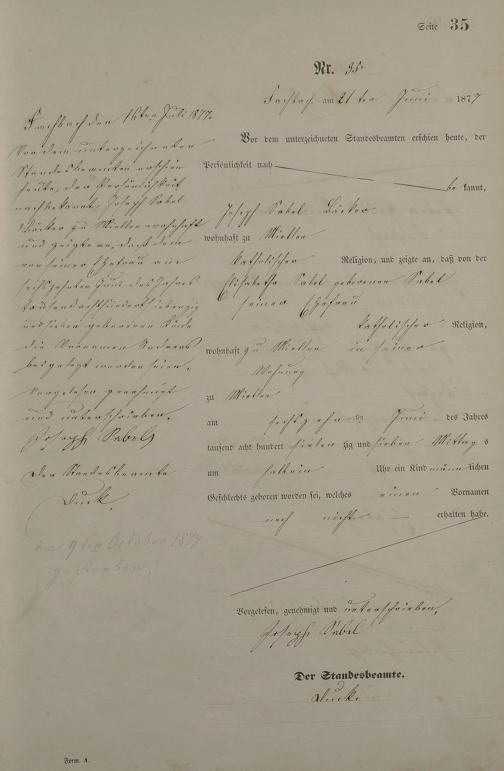 Seite 35
Nr. 35.
Fachbach am 21ten Juni 1877
Vor dem unterzeichneten Standesbeamten erschien heute, der
Persönlichkeit nach
be kannt,
Joseph Sabel Bäcker
wohnhaft zu Miellen
katholischer Religion, und zeigte an, daß von der
Elisabetha Sabel geborenen Sabel
seiner Ehefrau
katholischer Religion,
wohnhaft zu Miellen in seiner
Wohnung
zu Miellen
am sechszehnten Juni des Jahres
tausend acht hundert sieben zig und sieben Mittags
um halb ein Uhr ein Kind männlichen
Geschlechts geboren worden sei, welches einen Vornamen
noch nicht erhalten habe.
Vorgelesen, genehmigt und unterschrieben.
Joseph Sabel
Der Standesbeamte.
Fachbach den 16ten Juli 1877.
Vor dem unterzeichneten
Standesbeamten erschien
heute, der Persönlichkeit
nach bekannt, Joseph Sabel
Bäcker zu Miellen wohnhaft
und zeigte an, daß dem
von seiner Ehefrau am
sechszehnten Juni des Jahres
tausendachthundert siebenzig
und sieben geborenen Kinde
die Vornamen Andreas
beigelegt worden seien.
Vorgelesen genehmigt
und unterschrieben.
Joseph Sabel
Der Standesbeamte
am 9ten Octobre 1877
gestorben.
Form. A.